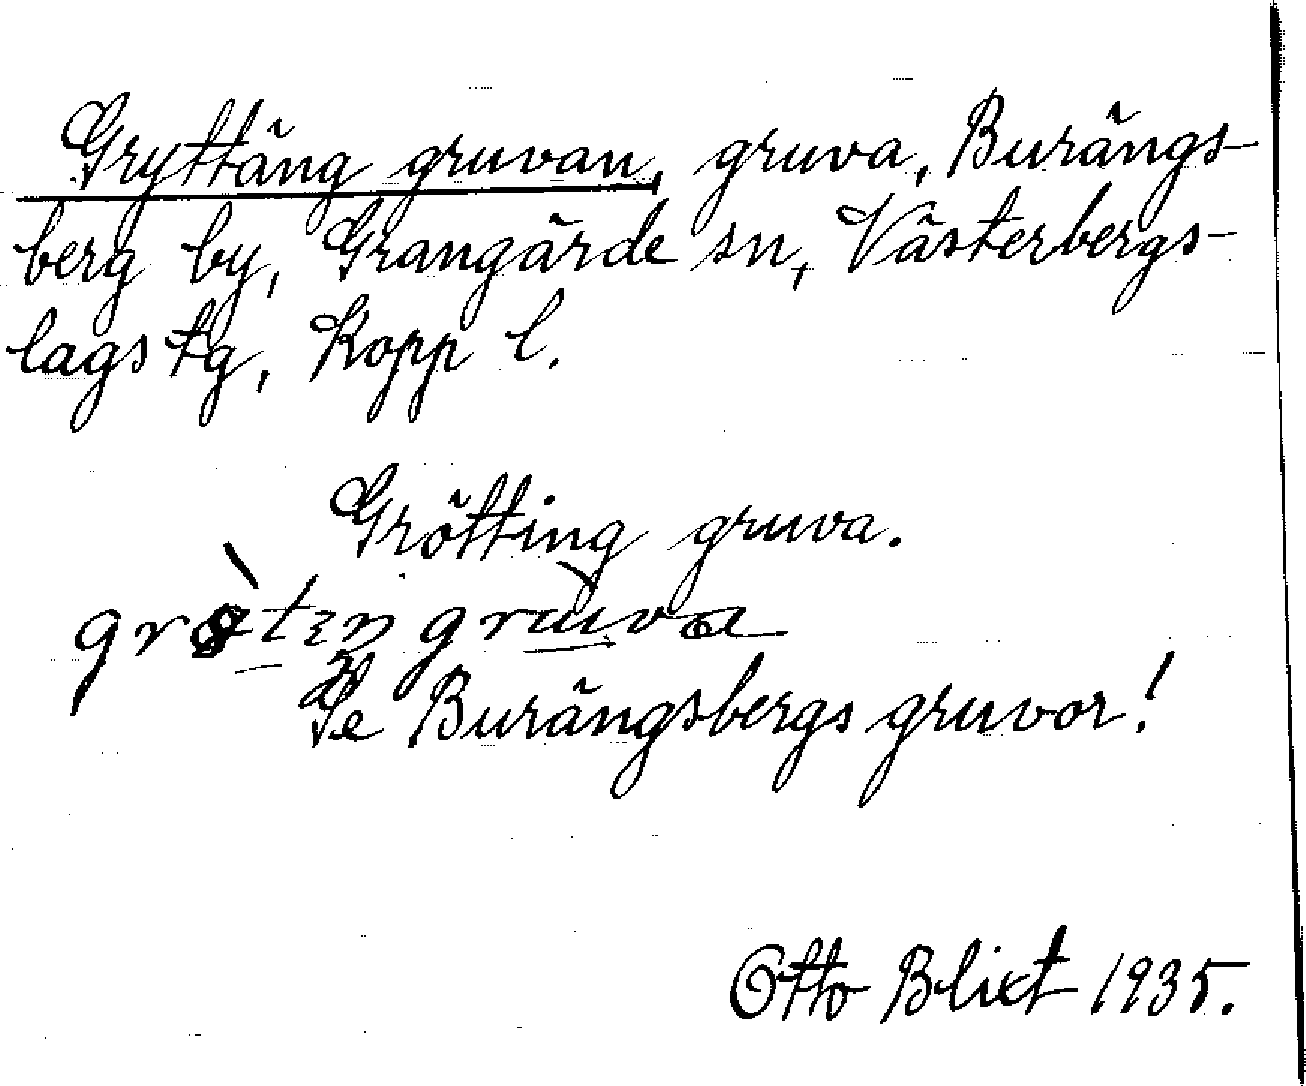 Gryttäng gruvan, gruva, Burängs-
berg by, Grangärde sn, Västerbergs-
lags tg, Kopp l.
Grötting gruva.
Se Burängsbergs gruvor!
Otto Blixt 1935.